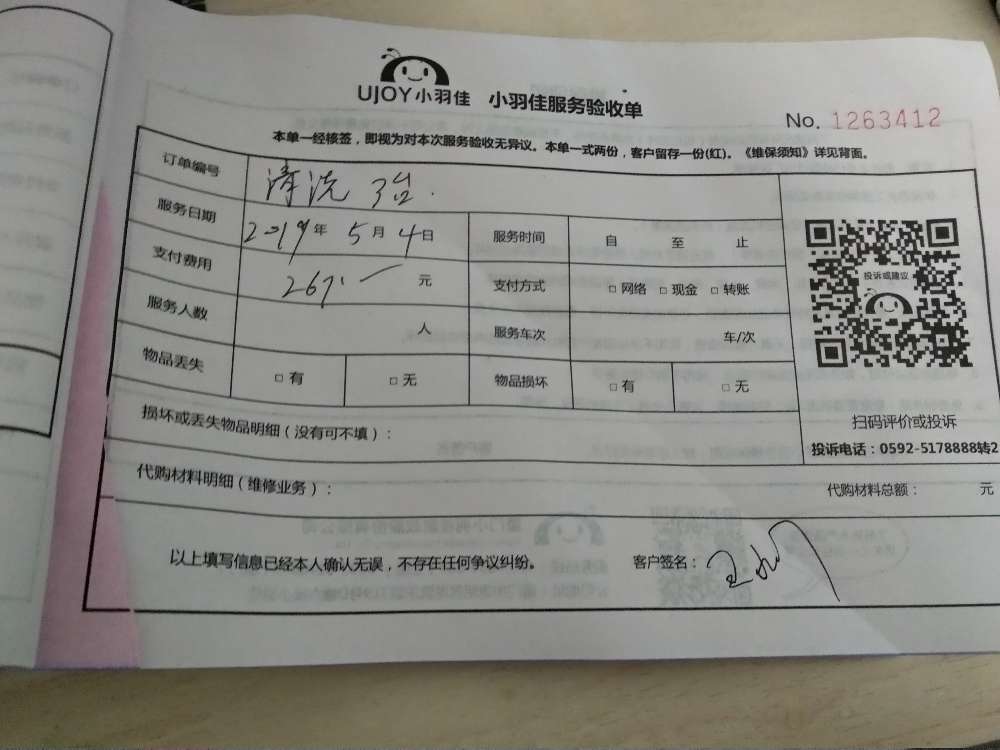 UJOY小羽佳 小羽佳服务验收单
No. 1263412
本单一经核签，即视为对本次服务验收无异议。本单一式两份，客户留存一份(红)。《维保须知》详见背面。
订单编号 清洗 3台.
服务日期 2019年 5月 4日 服务时间 自 至 止
支付费用 元 支付方式 □ 网络 □ 现金 □ 转账
服务人数 人 服务车次 车/次
物品丢失 □ 有 □ 无 物品损坏 □ 有 □ 无
投诉或建议
扫码评价或投诉
投诉电话：0592-5178888转2
损坏或丢失物品明细（没有可不填）：
代购材料明细（维修业务）： 代购材料总额： 元
以上填写信息已经本人确认无误，不存在任何争议纠纷。 客户签名：